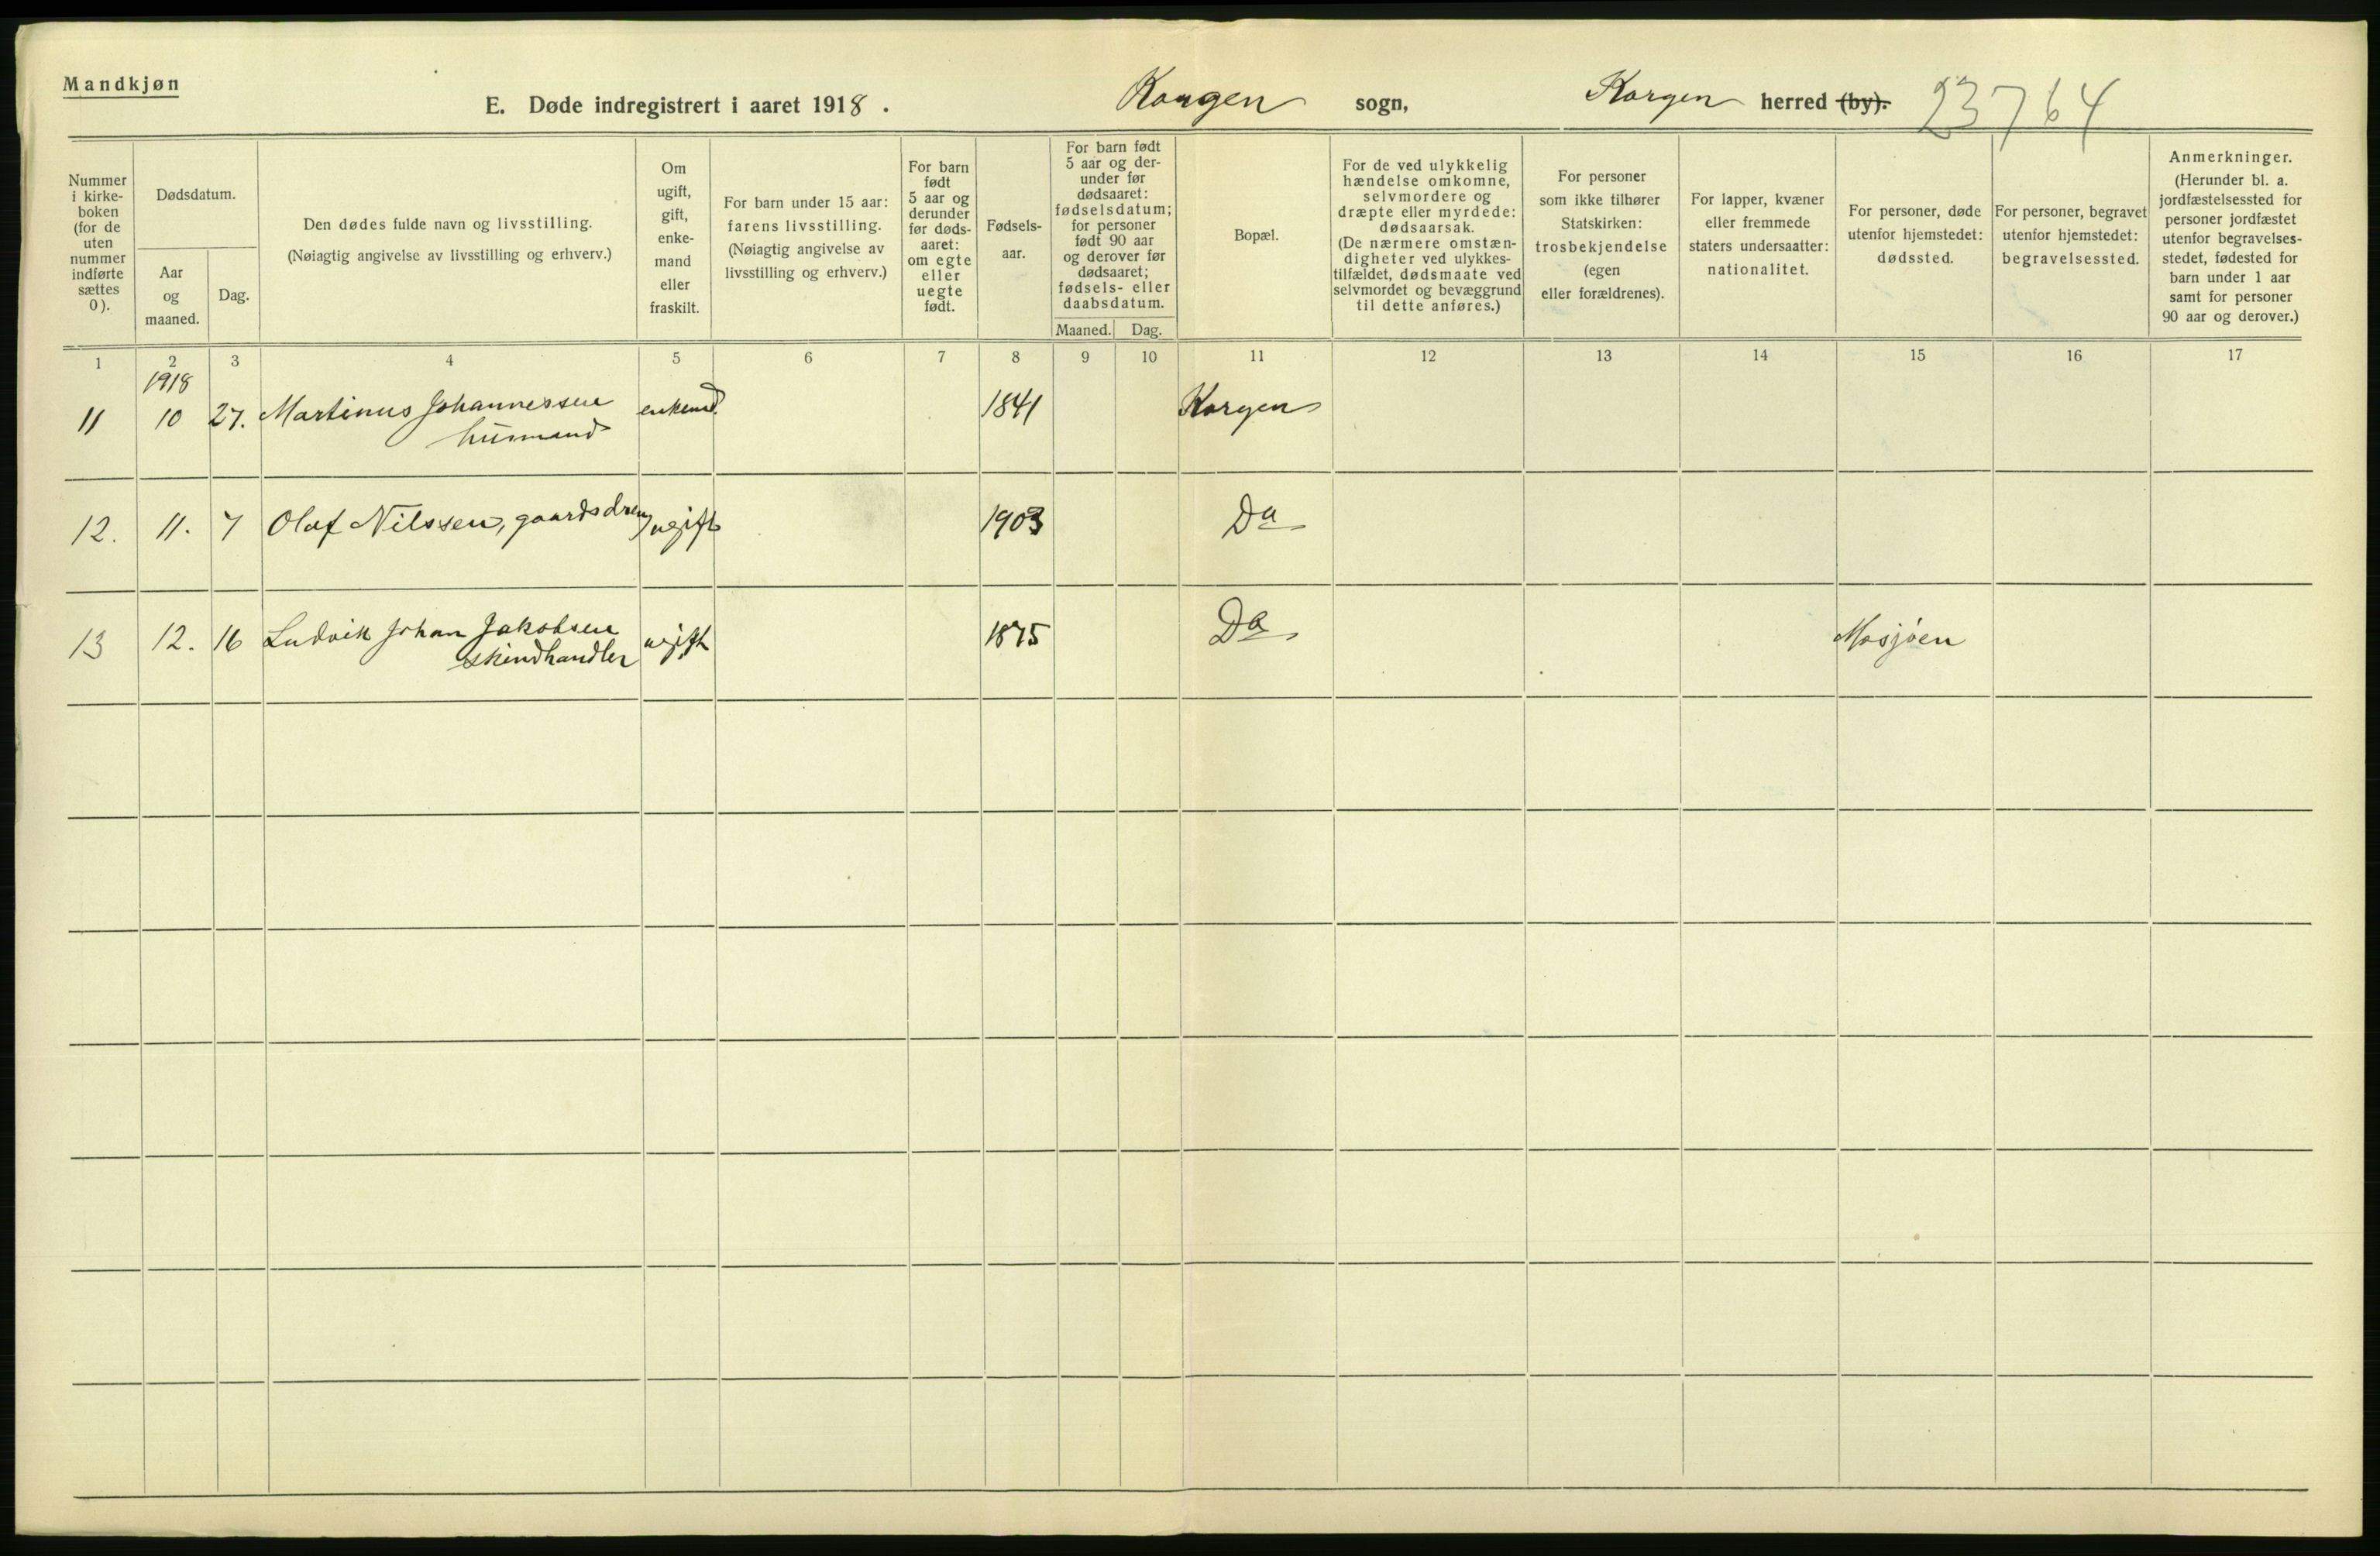 Mandkjøn
E. Døde indregistrert i aaret 1918. Korgen sogn, Korgen herred (by). 23764
Nummer
i kirke-
boken
(for de
uten
nummer
indførte
sættes
0).
Dødsdatum.
Aar
og
maaned.
Dag.
Den dødes fulde navn og livsstilling.
(Nøiagtig angivelse av livsstilling og erhverv.)
Om
ugift,
gift,
enke-
mand
eller
fraskilt.
For barn under 15 aar:
farens livsstilling.
(Nøiagtig angivelse av
livsstilling og erhverv.)
For barn
født
5 aar og
derunder
før døds-
aaret:
om egte
eller
uegte
født.
Fødsels-
aar.
For barn født
5 aar og der-
under før
dødsaaret:
fødselsdatum;
for personer
født 90 aar
og derover før
dødsaaret;
fødsels- eller
daabsdatum.
Maaned. Dag.
Bopæl.
For de ved ulykkelig
hændelse omkomne,
selvmordere og
dræpte eller myrdede:
dødsaarsak.
(De nærmere omstæn-
digheter ved ulykkes-
tilfældet, dødsmaate ved
selvmordet og bevæggrund
til dette anføres.)
For personer
som ikke tilhører
Statskirken:
trosbekjendelse
(egen
eller forældrenes).
For lapper, kvæner
eller fremmede
staters undersaatter:
nationalitet.
For personer, døde
utenfor hjemstedet:
dødssted.
For personer, begravet
utenfor hjemstedet:
begravelsessted.
Anmerkninger.
(Herunder bl. a.
jordfæstelsessted for
personer jordfæstet
utenfor begravelses-
stedet, fødested for
barn under 1 aar
samt for personer
90 aar og derover.)
1 2 3 4 5 6 7 8 9 10 11 12 13 14 15 16 17
1918
11 10 27. Martinus Johannessen enkemd. 1841 Korgen
husmand
12. 11. 7 Olaf Nilssen, gaardsdreng ugift 1903 Do
13 12. 16 Ludvik Johan Jakobsen ugift 1875 Do Mosjöen
skindhandler